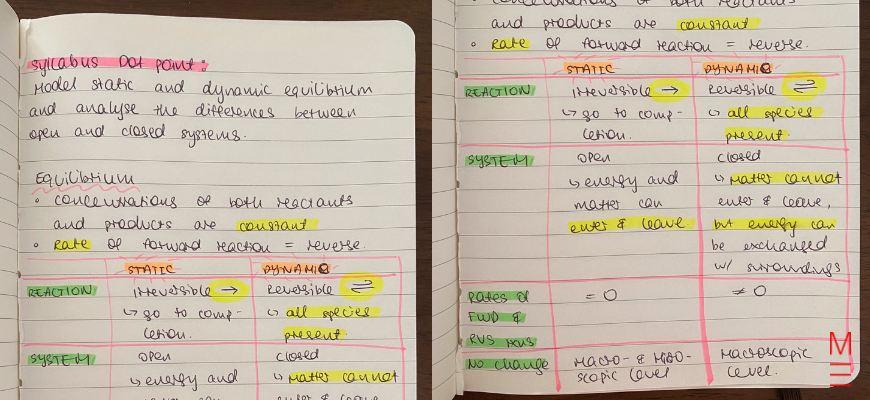 Syllabus Dot Point:
Model static and dynamic equilibrium
and analyse the differences between
open and closed systems.
Equilibrium
• concentrations of both reactants
and products are constant
• Rate of forward reaction = reverse.
STATIC DYNAMIC
REACTION Irreversible → Reversible ⇌
↳ go to comp- ↳ all species
letion. present.
SYSTEM open closed
↳ energy and ↳ Matter cannot
concentrations of both reactants
and products are constant
• Rate of forward reaction = reverse.
STATIC DYNAMIC
REACTION Irreversible → Reversible ⇌
↳ go to comp- ↳ all species
letion. present.
SYSTEM open closed
↳ energy and ↳ Matter cannot
matter can enter & leave,
enter & leave but energy can
be exchanged
w/ surroundings
Rates of = 0 ≠ 0
FWD &
RVS RXNS
No change Macro- & Micro- Macroscopic
scopic level level.
M